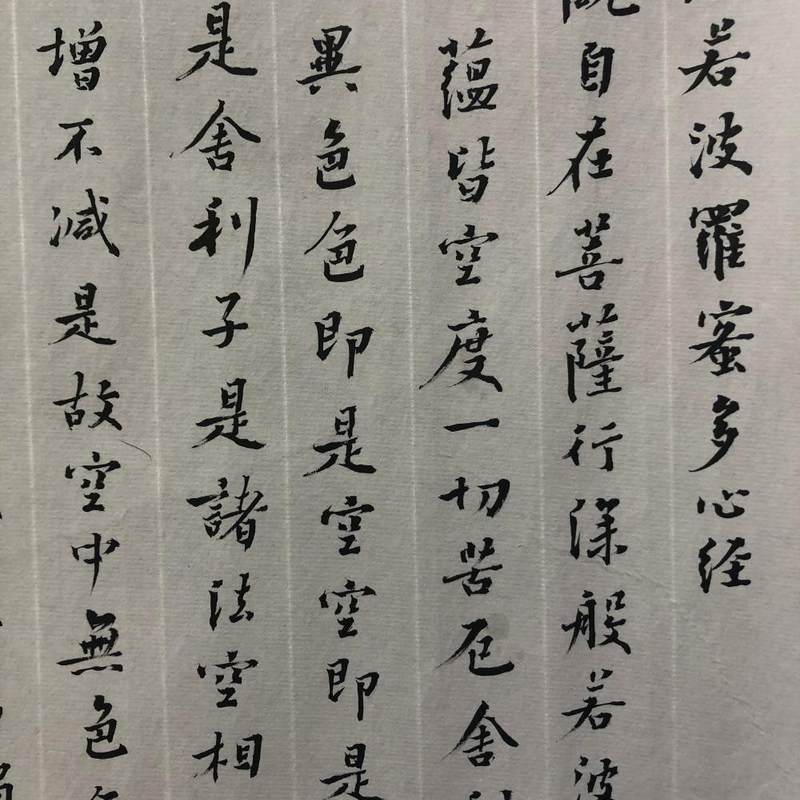 若波羅蜜多心経
自在菩薩行深般若波
蘊皆空度一切苦厄舍
異色色即是空空即是
是舍利子是諸法空相
增不減是故空中無色